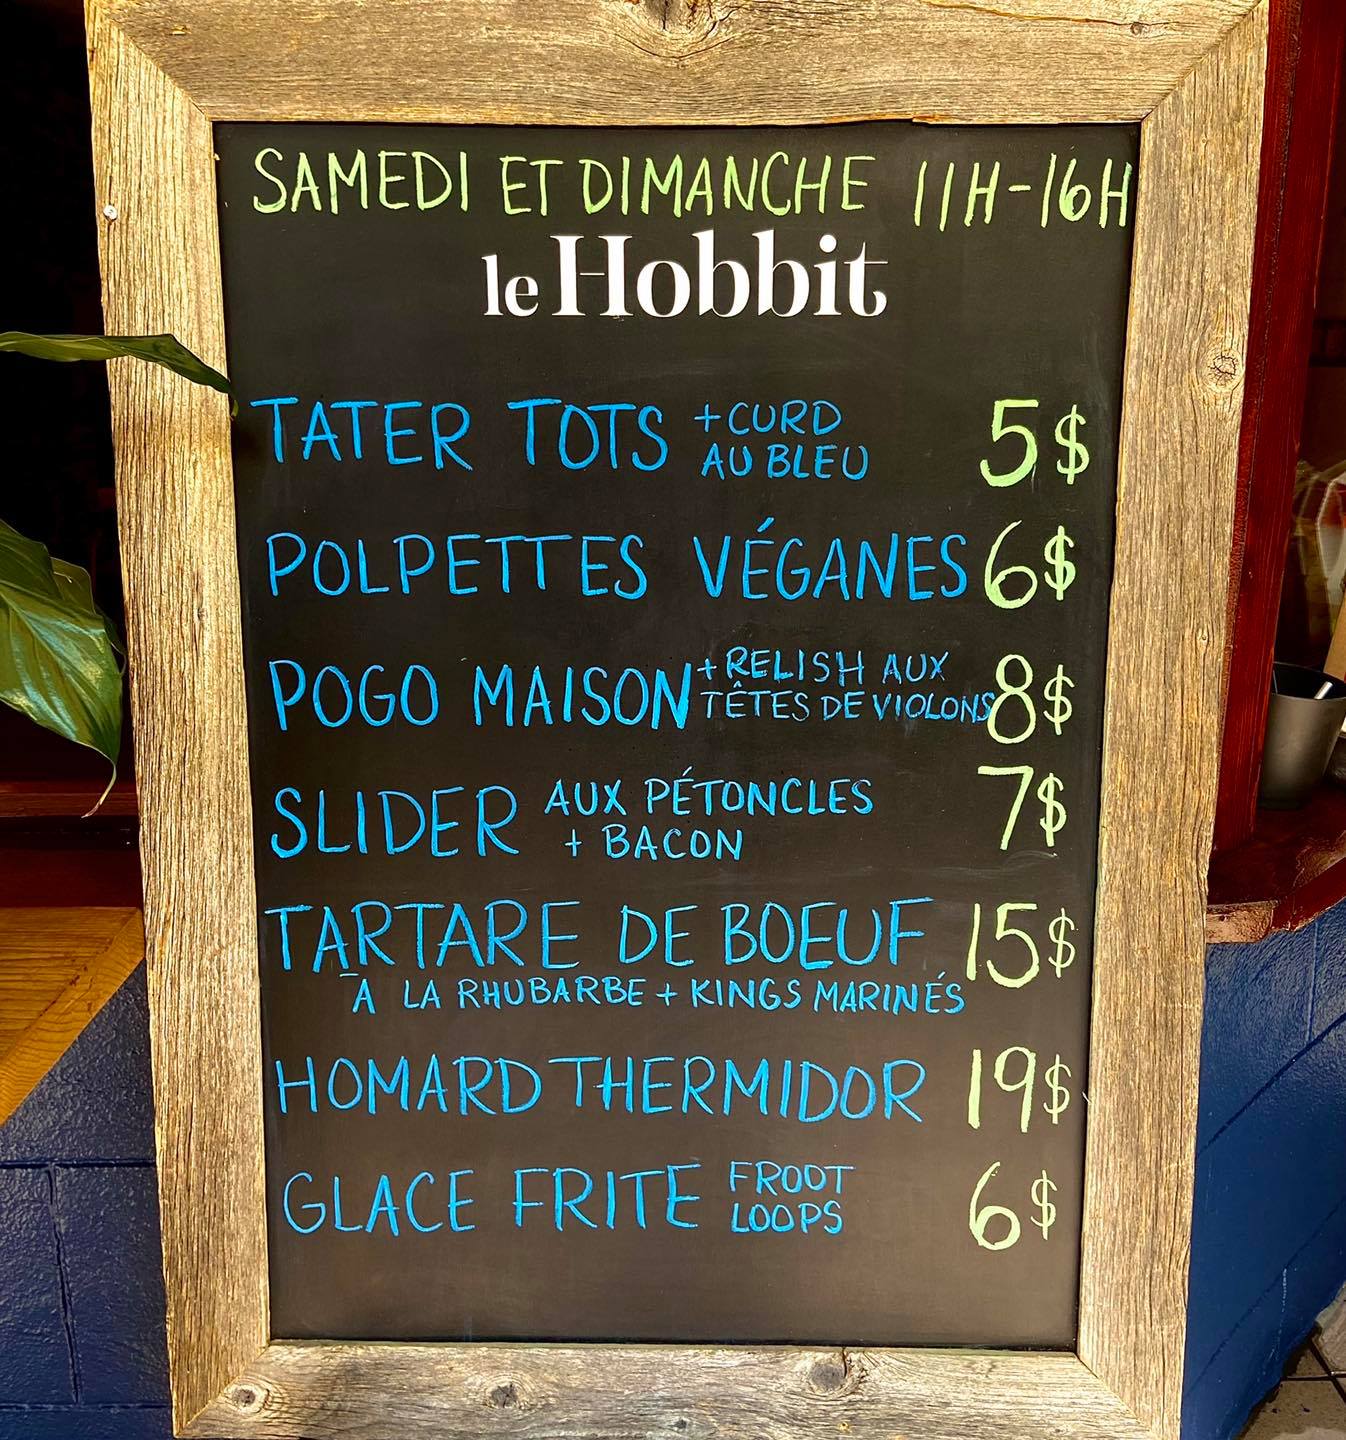 SAMEDI ET DIMANCHE 11H-16H
le Hobbit
TATER TOTS +CURD AU BLEU 5$
POLPETTES VÉGANES 6$
POGO MAISON +RELISH AUX TÊTES DE VIOLONS 8$
SLIDER AUX PÉTONCLES + BACON 7$
TARTARE DE BOEUF 15$
À LA RHUBARBE + KINGS MARINÉS
HOMARD THERMIDOR 19$
GLACE FRITE FROOT LOOPS 6$